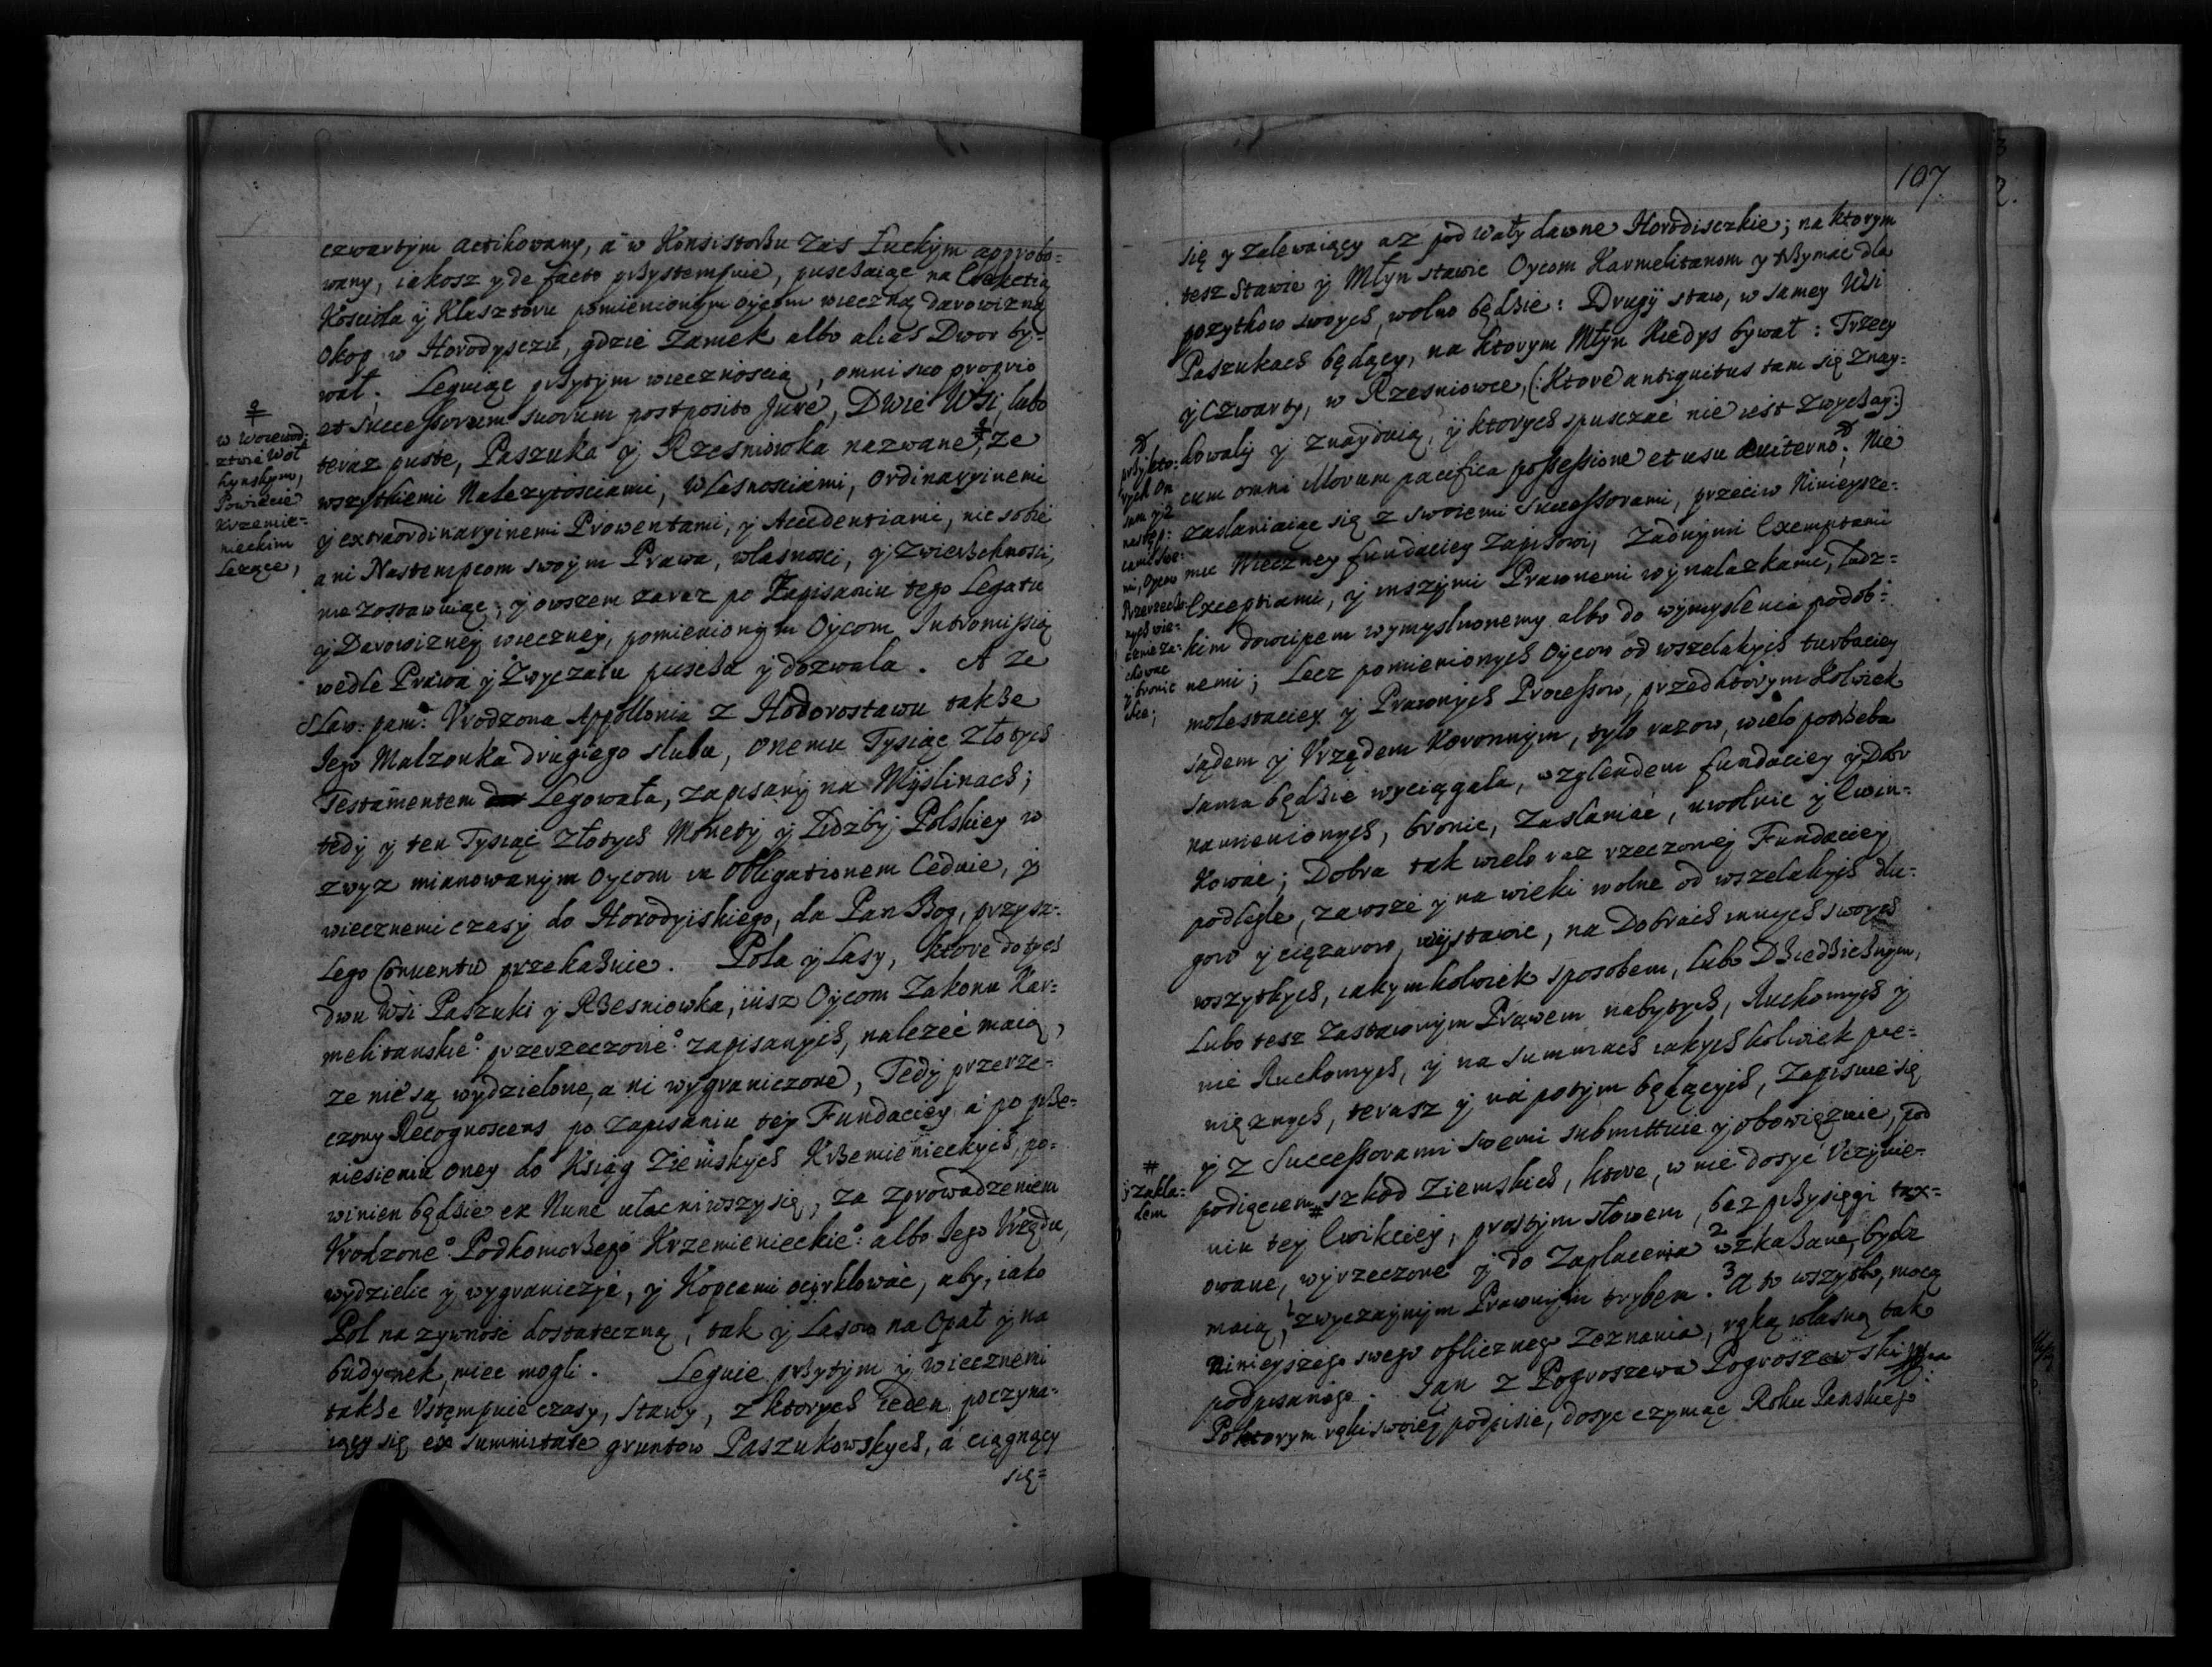 czwartym actikovany, a w Konsistorzu zas Luckym approbo=
wany, iakosz y de facto przystempuie, puszczaiąc na Erektią
Kosciola y Klasztoru pomienionym oycom wieczną darowizną
Okop w Horodyszczu, gdzie Zamek albo alias Dwor by=
wał. Leguiąc przytym wiecznoscią, omni suo proprio
et Successorum suorum postposito Jure, Dwie Wsi, lubo
teraz puste, Paszuka y Rzesniowka nazwane, ze
w Woiewod:
ztwie Woł
hynskym,
Powiecie
Krzemie=
nieckim
Lezące,
wszytkiemi Nalezytosciami, Wlasnosciami, Ordinaryinemi
y extraordinaryinemi Prowentami, y Accidentiami, nic sobie
ani Nastempcom swoym Prawa, wlasnosci, y Zwierzchnosci,
nie zostawuiąc, y owszem zaraz po Zapisaniu tego Legatu
y Darowizney wieczney, pomienionym Oycom Intromissią
wedle Prawa y Zwyczaiu puscza y dozwala. A ze
Slaw: pam: Vrodzona Appollonia z Hodorostawu takze
Jego Malzonka drugiego slubu, onemu Tysiąc Złotych
Testamentem Legowała, zapisany na Myslinach;
tedy y ten Tysiąc Złotych Monety y Lidzby Polskiey w
zwyz mianowanym Oycom in Obligationem Ceduie, y
wiecznemi czasy do Horodyiskiego, da Pan Bog, przysz=
lego Conuentu przekazuie. Pola y Lasy, ktore do tych
dwu Wsi Paszuki y Rzesniowka, iusz Oycom Zakonu Kar=
melitanskie° przerzeczone° zapisanych, nalezeć maią,
ze nie są wydzielone, ani wygraniczone, Tedy przerze=
czony Recognoscens po zapisaniu tey Fundaciey a po prze=
niesieniu oney do Ksiąg Ziemskych Krzemienieckych, po=
winien będzie ex Nunc ułacniwszy się, za zprowadzeniem
Vrodzone° Podkomorzego Krzemienieckie° albo Jego Vrzędu,
wydzielic y wygraniczyć, y Kopcami ocyrklować, aby, iako
Pol na zywność dostateczną, tak y Lasow na Opał y na
budynek, miec mogli. Leguie przytym y wiecznemi
takze Vstępuie czasy, Stawy, z ktorych ieden poczyna=
iący się ex sumnitate gruntow Paszukowskych, a ciągnący
się=
107
się y zalewaiący az pod wały dawne Horodisczkie; na ktorym
tesz Stawie y Młyn stawic Oycom Karmelitanom y trzymać dla
pozytkow swoych, wolno będzie: Drugy staw, w samey Wsi
Paszukach będący, na ktorym Młyn kiedys bywał: Trzecy
y Czwarty, w Rzesniowce, (: Ktore antiquitus tam się Znay=
dowaly y znayduią, y ktorych spusczać nie iest zwyczay:)
cum omni Illorum pacifica possessione et usu euiterno; Nie
przy kto:
rych On
sam y z
następ:
cami Swe=
mi, Oycow
Rzerzeczo
nych wie=
cznie za=
chowac
y bronic
chce;
zaslaniaiąc się z swoiemi Successorami, przeciw Nînieysze=
mu Wieczney fundaciey Zapisowi, Zadnymi Exemptami
Exceptiami, y inszymi Prawnemi wynalazkami, Ludz=
kim dowcipem wymyslnonemy albo do wymyslenia podob=
nemi; Lecz pomienionych Oycow od wszelakych turbaciey
molestaciey y Prawnych Processow, przed ktorym kolwiek
sądem y Vrzędem Koronnym, tylo razow, wielo potrzeba
sama będzie wyciągała, względem fundaciey y Dobr
namienionych, bronic, zaslaniać, uwolnic y Ewin=
kować; Dobra tak wielo raz rzeczoney Fundaciey
podlegle, zawsze y na wieki wolne od wszelakych dlu=
gow y ciężarow, wystawic, na Dobrach innych swoych
wszytkych, iakymkolwiek sposobem, lubo Dziedzicznym,
Lubo tesz Zastawnym Prawem nabytych, Ruchomych y
nie Ruchomych, y na Summach iakychkolwiek pie=
nięznych, terasz y na potym będących, Zapisuie się
y z Successorami swemi submittuie y obowięzuie, pod
podięciem # szkod Ziemskich, ktore, w nie dosyc Vczynie=
# y zakla=
dem
niu tey Ewikciey, prostym słowem, bez przysięgi tax=
owane, wyrzeczone y do Zaplacenia 2 wzkazane, bydz
maią, 1 zwyczaynym Prawnym trybem. 3 A to wszytko, mocą
Ninieyszego swego oblicznego Zeznania, ręką wlasną tak
podpisanego. Jan z Pogroszewa Pogroszewski
Po ktorym ręki swoiey podpisie, dosyc czyniąc Roku Panskiego